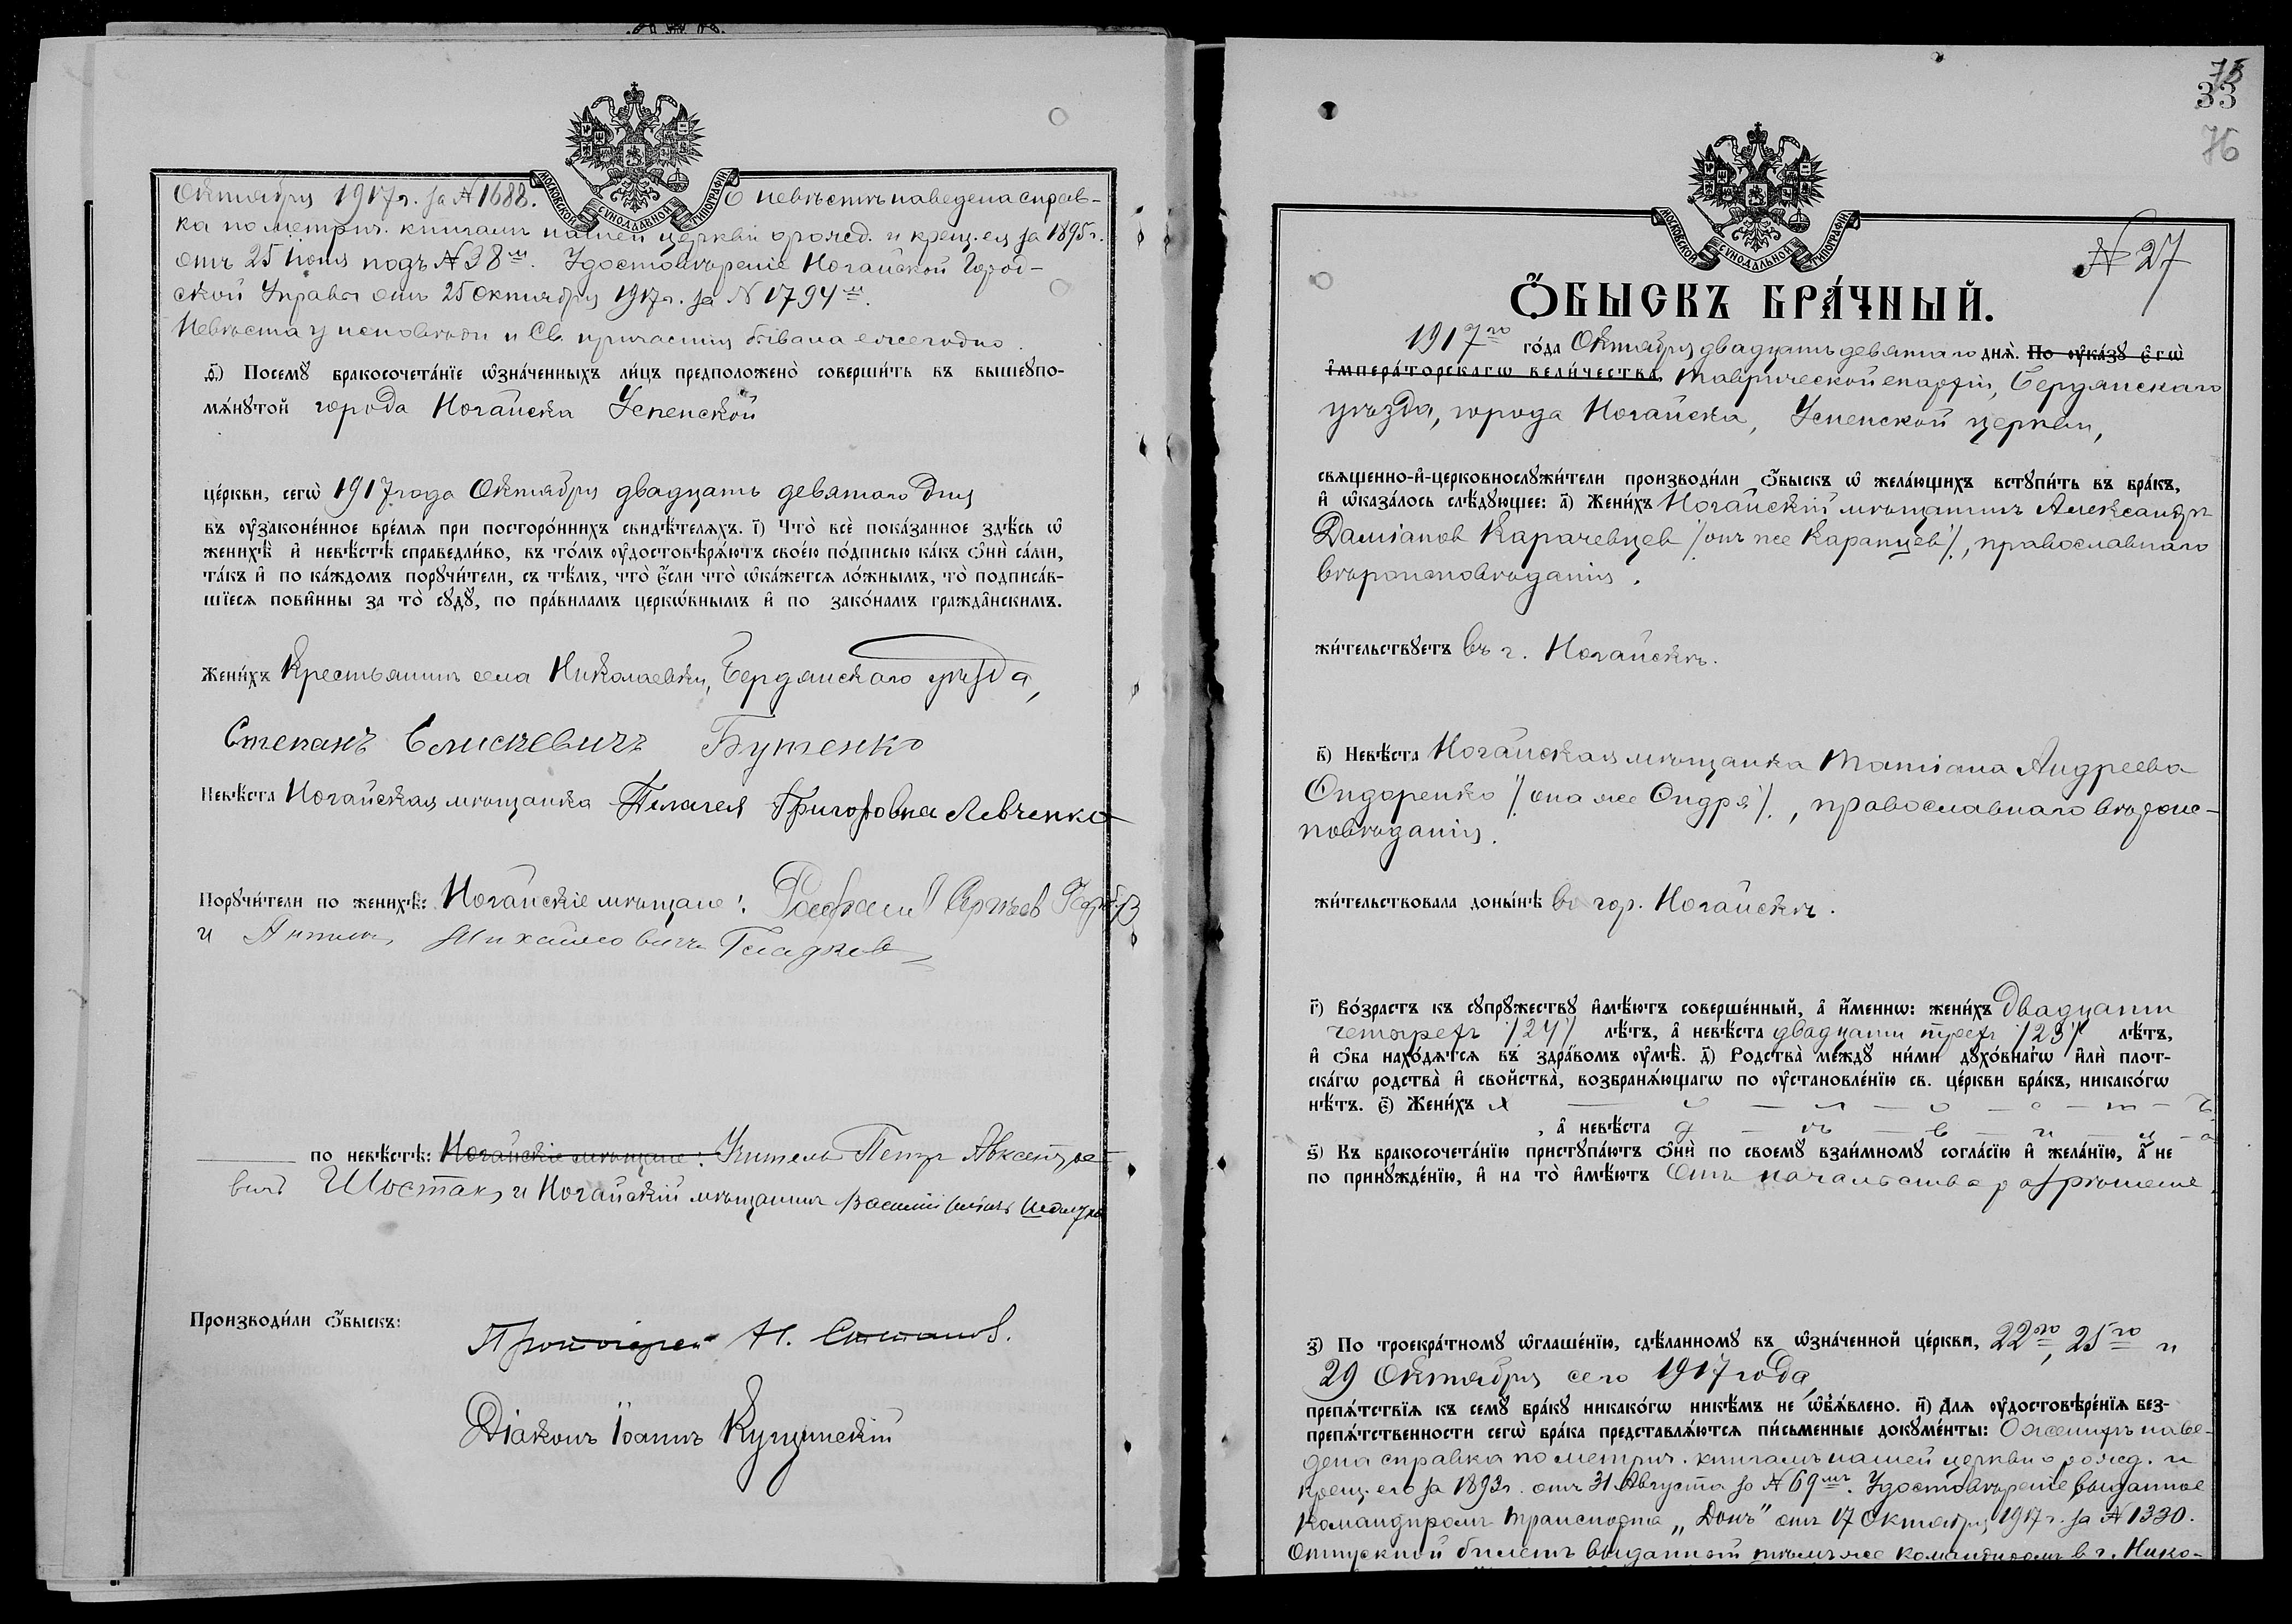 Октября 1917 г. за № 1688. О невѣстѣ наведена справ-
ка по метрич. книгамъ нашей церкви о рожд. и крещ. ея за 1895 г.
отъ 25 подъ № 38м. Удостовѣреніе Ногайской Город-
ской Управы отъ 25 Октября 1917 г. за № 1794м.
Невѣста у исповѣди и Св. причастія бывала ежегодно.
д҃і) Посемꙋ̀ бракосочета́нїе ѡ҆зна́ченныхъ ли́цъ предположено̀ соверши́ть въ вышеꙋпо-
мѧ́нꙋтой города Ногайска Успенской
МОСКОВСКОЙ СѴНОДАЛЬНОЙ ТИПОГРАФІИ
це́ркви, сегѡ̀ 1917 года Октября двадцать девятаго дня
въ ᲂу҆законе́нное вре́мѧ при посторо́ннихъ свидѣ́телѧхъ. і҃) Что̀ всѐ пока́занное здѣ́сь ѡ҆
женихѣ̀ и҆ невѣ́стѣ справедли́во, въ то́мъ ᲂу҆достовѣрѧ́ютъ свое́ю по́дписью ка́къ ѻ҆нѝ са́ми,
та́къ и҆ по ка́ждомъ порꙋчи́тели, съ тѣ́мъ, что̀ є҆́сли что̀ ѡ҆ка́жетсѧ ло́жнымъ, то̀ подписа́в-
шїесѧ пови́нны за то̀ сꙋдꙋ̀, по пра́виламъ церкѡ́внымъ и҆ по зако́намъ гражда́нскимъ.
Жени́хъ Крестьянинъ села Николаевки, Бердянскаго уѣзда,
Степанъ Елисѣевичъ Бутенко
Невѣ́ста Ногайская мѣщанка Пелагея Григоровна Левченко
Порꙋчи́тели по женихѣ̀: Ногайскіе мѣщане:
и Михайловичъ Гладков
по невѣ́стѣ: Ногайскіе мѣщане: Учитель Петръ Авксентье-
вичъ Шостакъ и Ногайскій мѣщанинъ Василій
Производи́ли ѻ҆́быскъ:
Протоіерей Н.
Діаконъ Іоаннъ
75
33
76
МОСКОВСКОЙ СѴНОДАЛЬНОЙ ТИПОГРАФІИ
№ 27
Ѻ҆́БЫСКЪ БРА́ЧНЫЙ.
1917го го́да Октября двадцать девятаго днѧ̀. По ᲂу҆ка́зꙋ є҆гѡ̀
и҆мпера́торскагѡ вели́чества, Таврической епархіи, Бердянскаго
уѣзда, города Ногайска, Успенской церкви,
свѧще́нно-и҆-церковнослꙋжи́тели производи́ли ѻ҆́быскъ ѡ҆ жела́ющихъ встꙋпи́ть въ бра́къ,
и҆ ѡ҆каза́лось слѣ́дꙋющее: а҃) Жени́хъ Ногайскій мѣщанинъ Александръ
Даміанов Карачевцев /онъ же Каранцев/, православнаго
вѣроисповѣданія.
жи́тельствꙋетъ въ г. Ногайскѣ.
в҃) Невѣ́ста Ногайская мѣщанка Татіана Андреева
Ондоренко /она же Ондря/, православнаго вѣроис-
повѣданія.
жи́тельствовала доны́нѣ въ гор. Ногайскѣ.
г҃) Во́зрастъ къ сꙋпрꙋ́жествꙋ и҆мѣ́ютъ соверше́нный, а҆ и҆́меннѡ: жени́хъ двадцати
четырехъ /24/ лѣ́тъ, а҆ невѣ́ста двадцати трехъ /23/ лѣ́тъ,
и҆ ѻ҆́ба нахо́дѧтсѧ въ здра́вомъ ᲂу҆мѣ̀. д҃) Родства̀ междꙋ̀ ни́ми дꙋхо́внагѡ и҆лѝ плот-
ска́гѡ родства̀ и҆ сво́йства̀, возбранѧ́ющагѡ по ᲂу҆становле́нїю св. це́ркви бра́къ, никако́гѡ
нѣ́тъ. є҃) Жени́хъ х — о — л — о — с — т — ъ
, а҆ невѣ́ста д — ѣ — в — и — ц — а
ѕ҃) Къ бракосочета́нїю пристꙋпа́ютъ ѻ҆нѝ по своемꙋ̀ взаи́мномꙋ согла́сїю и҆ жела́нїю, а҆ не
по принꙋжде́нїю, и҆ на то̀ и҆мѣ́ютъ отъ начальства разрѣшеніе
з҃) По троекра́тномꙋ ѡ҆глаше́нїю, сдѣ́ланномꙋ въ ѡ҆зна́ченной це́ркви, 22го, 25го и
29 Октября сего 1917 года,
препѧ́тствїѧ къ семꙋ̀ бра́кꙋ никако́гѡ никѣ́мъ не ѡ҆б̾ѧ́влено. и҃) Для ᲂу҆достовѣре́нїѧ без-
препѧ́тственности сегѡ̀ бра́ка представлѧ́ютсѧ пи́сьменные докꙋме́нты: О женихѣ наве-
дена справка по метрич. книгамъ нашей церкви о рожд. и
крещ. его за 1893 г. отъ 31 Августа за № 69мъ. Удостовѣреніе выданное
Командиромъ транспорта „Донъ" отъ 17 Октября 1917 г. за № 1330.
Отпускной билетъ выданный тѣмъ же командиромъ в г. Нико-